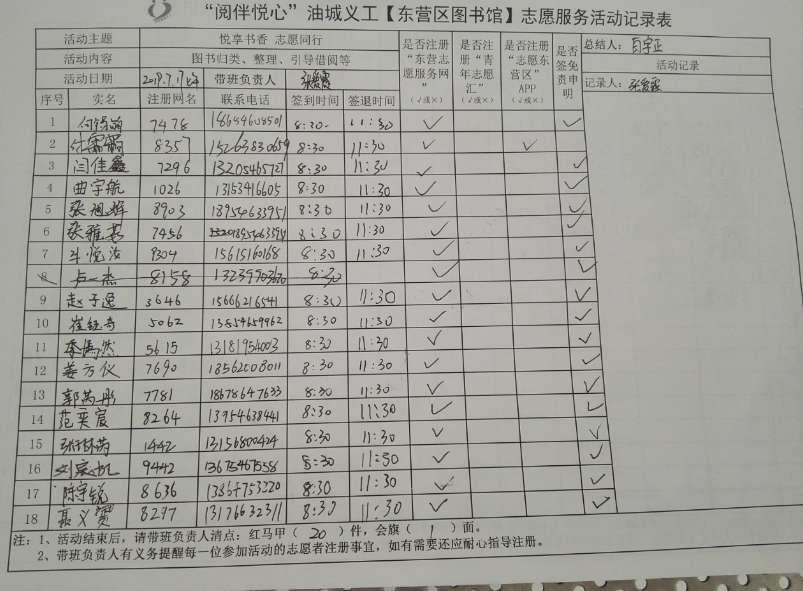 “阅伴悦心”油城义工【东营区图书馆】志愿服务活动记录表
活动主题 悦享书香 志愿同行 是否注册“东营志愿服务网”（√或×） 是否注册“青年志愿汇”（√或×） 是否注册“志愿东营区”APP（√或×） 是否签免责申明 总结人：
活动内容 图书归类、整理、引导借阅等 活动记录
活动日期 带班负责人 记录人：
序号 实名 注册网名 联系电话 签到时间 签退时间
1 7478 8:30 11:30 √ √
2 8357 15263830659 8:30 11:30 √ √
3 闫佳鑫 7296 13205465727 8:30 11:30 √ √
4 曲宇航 1026 13153416605 8:30 11:30 √ √
5 张旭辉 8903 18954633951 8:30 11:30 √ √
6 7456 8:30 11:30 √ √
7 9304 15615160168 8:30 11:30 √ √
8 卢一杰 8158 8:30 √ √
9 赵子逸 3646 15666216541 8:30 11:30 √ √
10 崔钰奇 5062 13854659962 8:30 11:30 √ √
11 5615 13181954003 8:30 11:30 √ √
12 姜方仪 7690 18562008011 8:30 11:30 √ √
13 7781 18678647633 8:30 11:30 √ √
14 范奕宸 8264 13954638441 8:30 11:30 √ √
15 1442 13156800424 8:30 11:30 √ √
16 9442 13675467558 8:30 11:30 √ √
17 陈宇锐 8636 8:30 11:30 √ √
18 聂义赟 8297 13176632311 8:30 11:30 √ √
注：1、活动结束后，请带班负责人清点：红马甲（ 20 ）件，会旗（ 1 ）面。
2、带班负责人有义务提醒每一位参加活动的志愿者注册事宜，如有需要还应耐心指导注册。